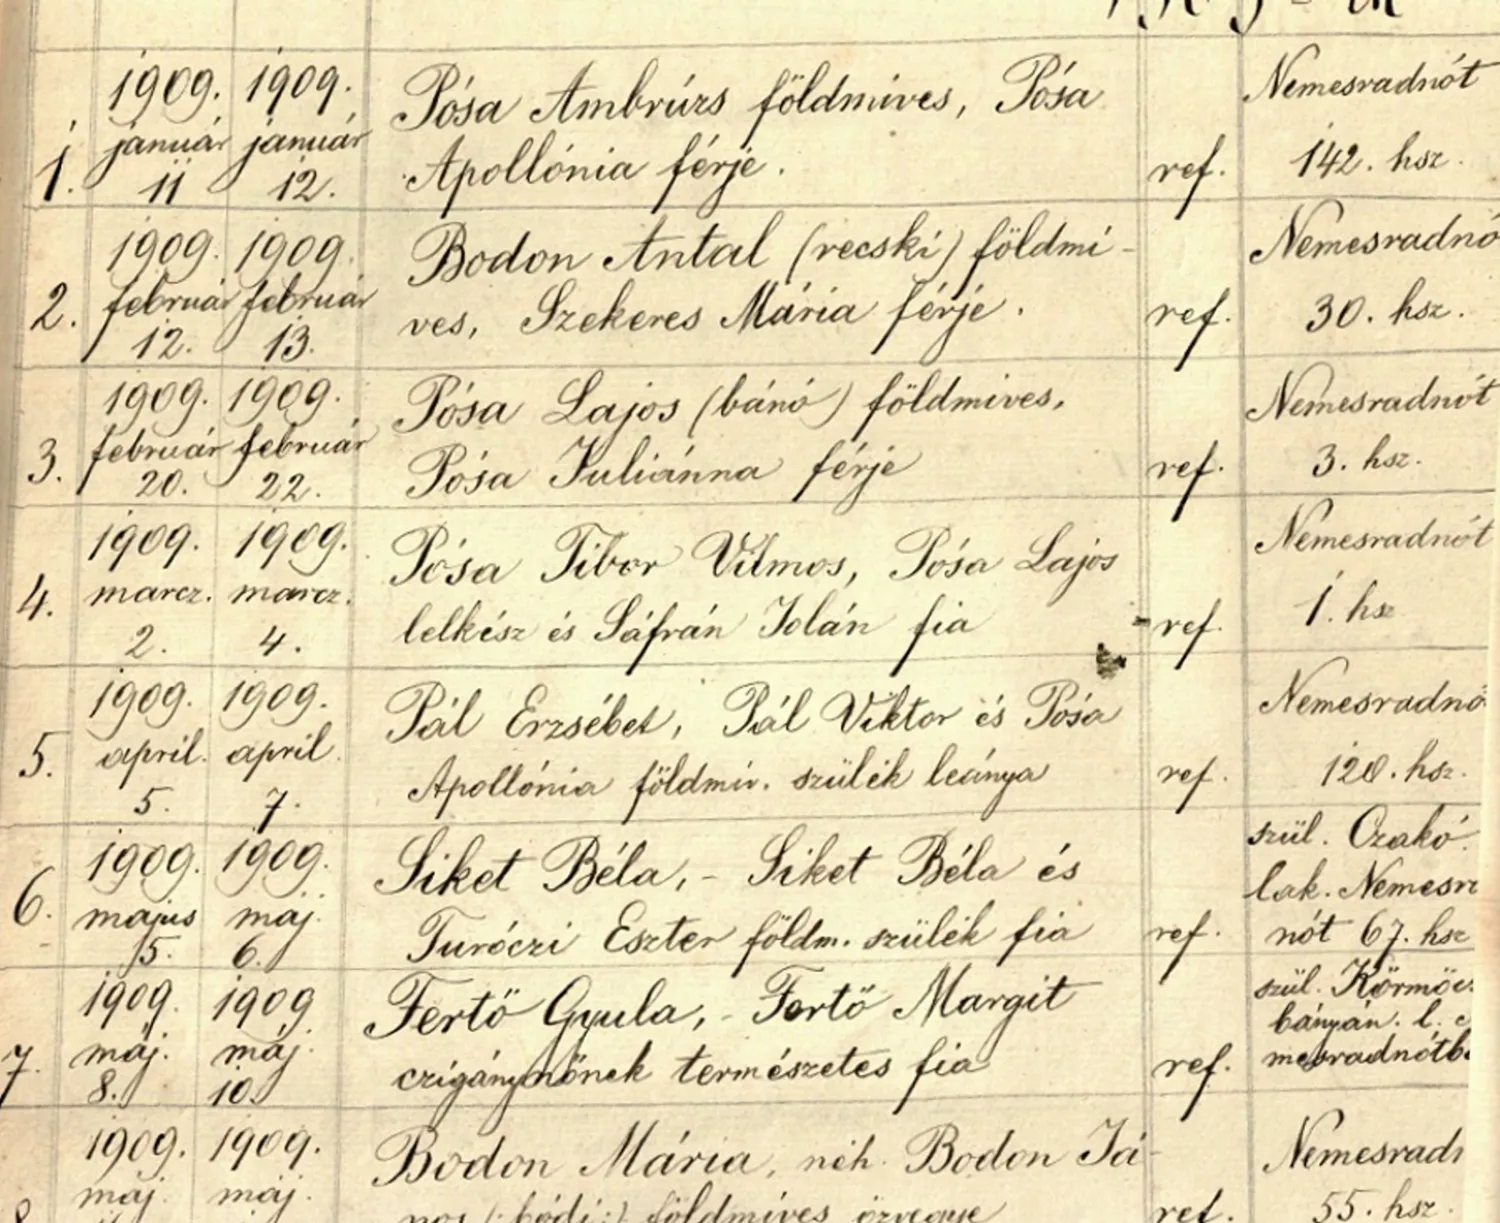 1909. 1909. Pósa Ambrúzs földmives, Pósa Nemesradnót
január január Apollónia férje. ref. 142. hsz.
1. 11 12.
1909. 1909. Bodon Antal (recski) földmi- Nemesradnó
2. február február ves, Szekeres Mária férje. ref. 30. hsz.
12. 13.
1909. 1909. Pósa Lajos (bánó) földmives, Nemesradnót
3. február február Pósa Juliánna férje ref. 3. hsz.
20. 22.
1909. 1909. Pósa Tibor Vilmos, Pósa Lajos Nemesradnót
4. marcz. marcz. lelkész és Sáfrán Jolán fia ref. 1. hsz
2. 4.
1909. 1909. Pál Erzsébet, Pál Viktor és Pósa Nemesradnó
5. april. april. Apollónia földmiv. szülék leánya ref. 120. hsz.
5. 7.
szül. Czakó.
1909. 1909. Siket Béla, - Siket Béla és lak. Nemesra
6. május máj. Turóczi Eszter földm. szülék fia ref. nót 67. hsz
5. 6.
1909. 1909 Fertő Gyula, - Fertő Margit szül. Körmöcz
bányán. l.
7. máj. máj. czigánynőnek természetes fia ref. mesradnótb
8. 10.
1909. 1909. Bodon Mária, néh. Bodon Já- Nemesrad
8 máj. máj. nos (:bódi:) földmives özvegye ref. 55. hsz.